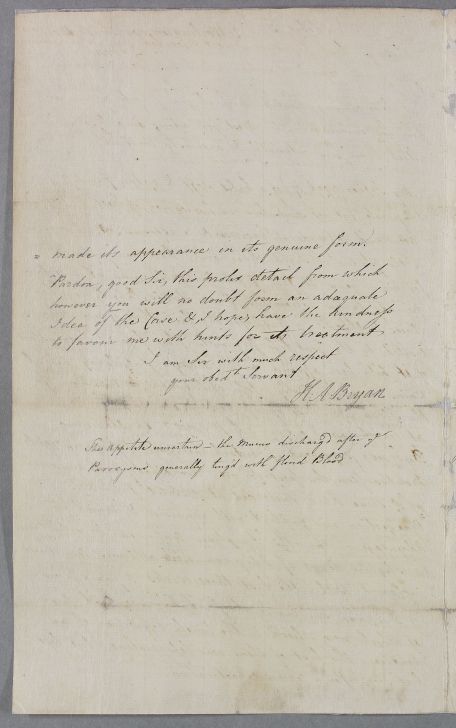 = made its appearance in its genuine form.
Pardon, good Sir, this prolix detail from which
however you will no doubt form an adaquate
Idea of the Case & I hope, have the kindness
to favour me with hints for its treatment
I am Sir with much respect
your obedt Servant
H A Bryan
The Appetite uncertain – the Mucus discharg'd after ye
Paroxysms generally ting'd with florid Blood